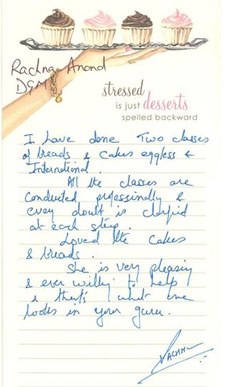 Rachna Anand
DSM
stressed
is just desserts
spelled backward
I have done Two classes
of breads & Cakes eggless &
International.
All the classes are
Conducted professionally &
every doubt is clarified
at each step.
Loved the Cakes
& breads.
She is very pleasing
& ever willing to help
& that's what one
looks in your guru.
Rachna